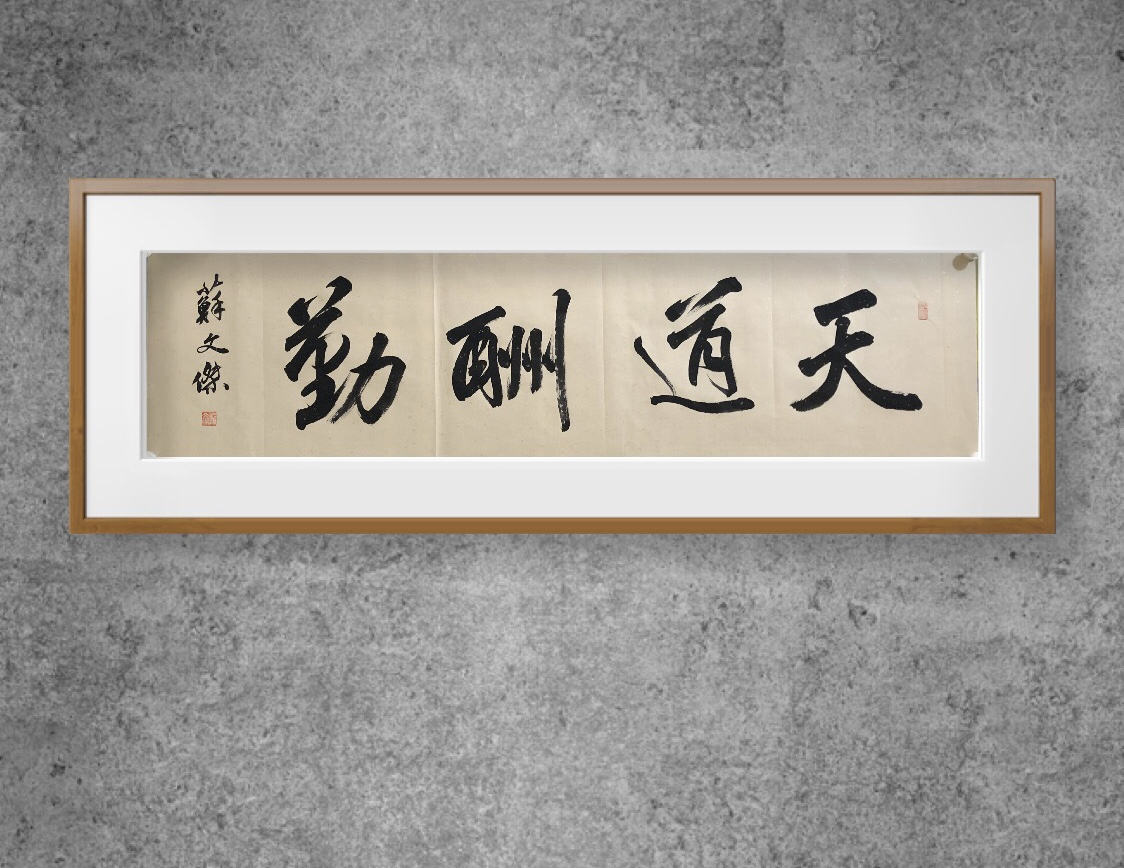 天道酬勤
蘇文傑